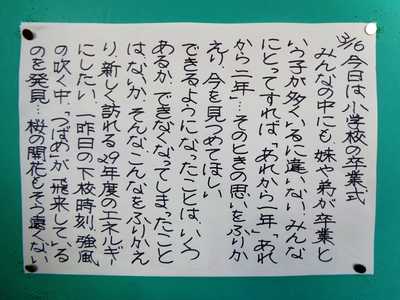 3/16 今日は小学校の卒業式
みんなの中にも妹や弟が卒業と
いう子が多くいるに違いない。みんな
にとってすれば「あれから一年」「あれ
から二年」…そのときの思いをふりか
えり、今を見つめてほしい
できるようになったことは、いくつ
あるか、できなくなってしまったこと
はないか、そんなこんなをふりかえ
り、新しく訪れる29年度のエネルギー
にしたい。一昨日の下校時刻、強風
の吹く中、「つばめ」が飛来している
のを発見…桜の開花もそう遠くない